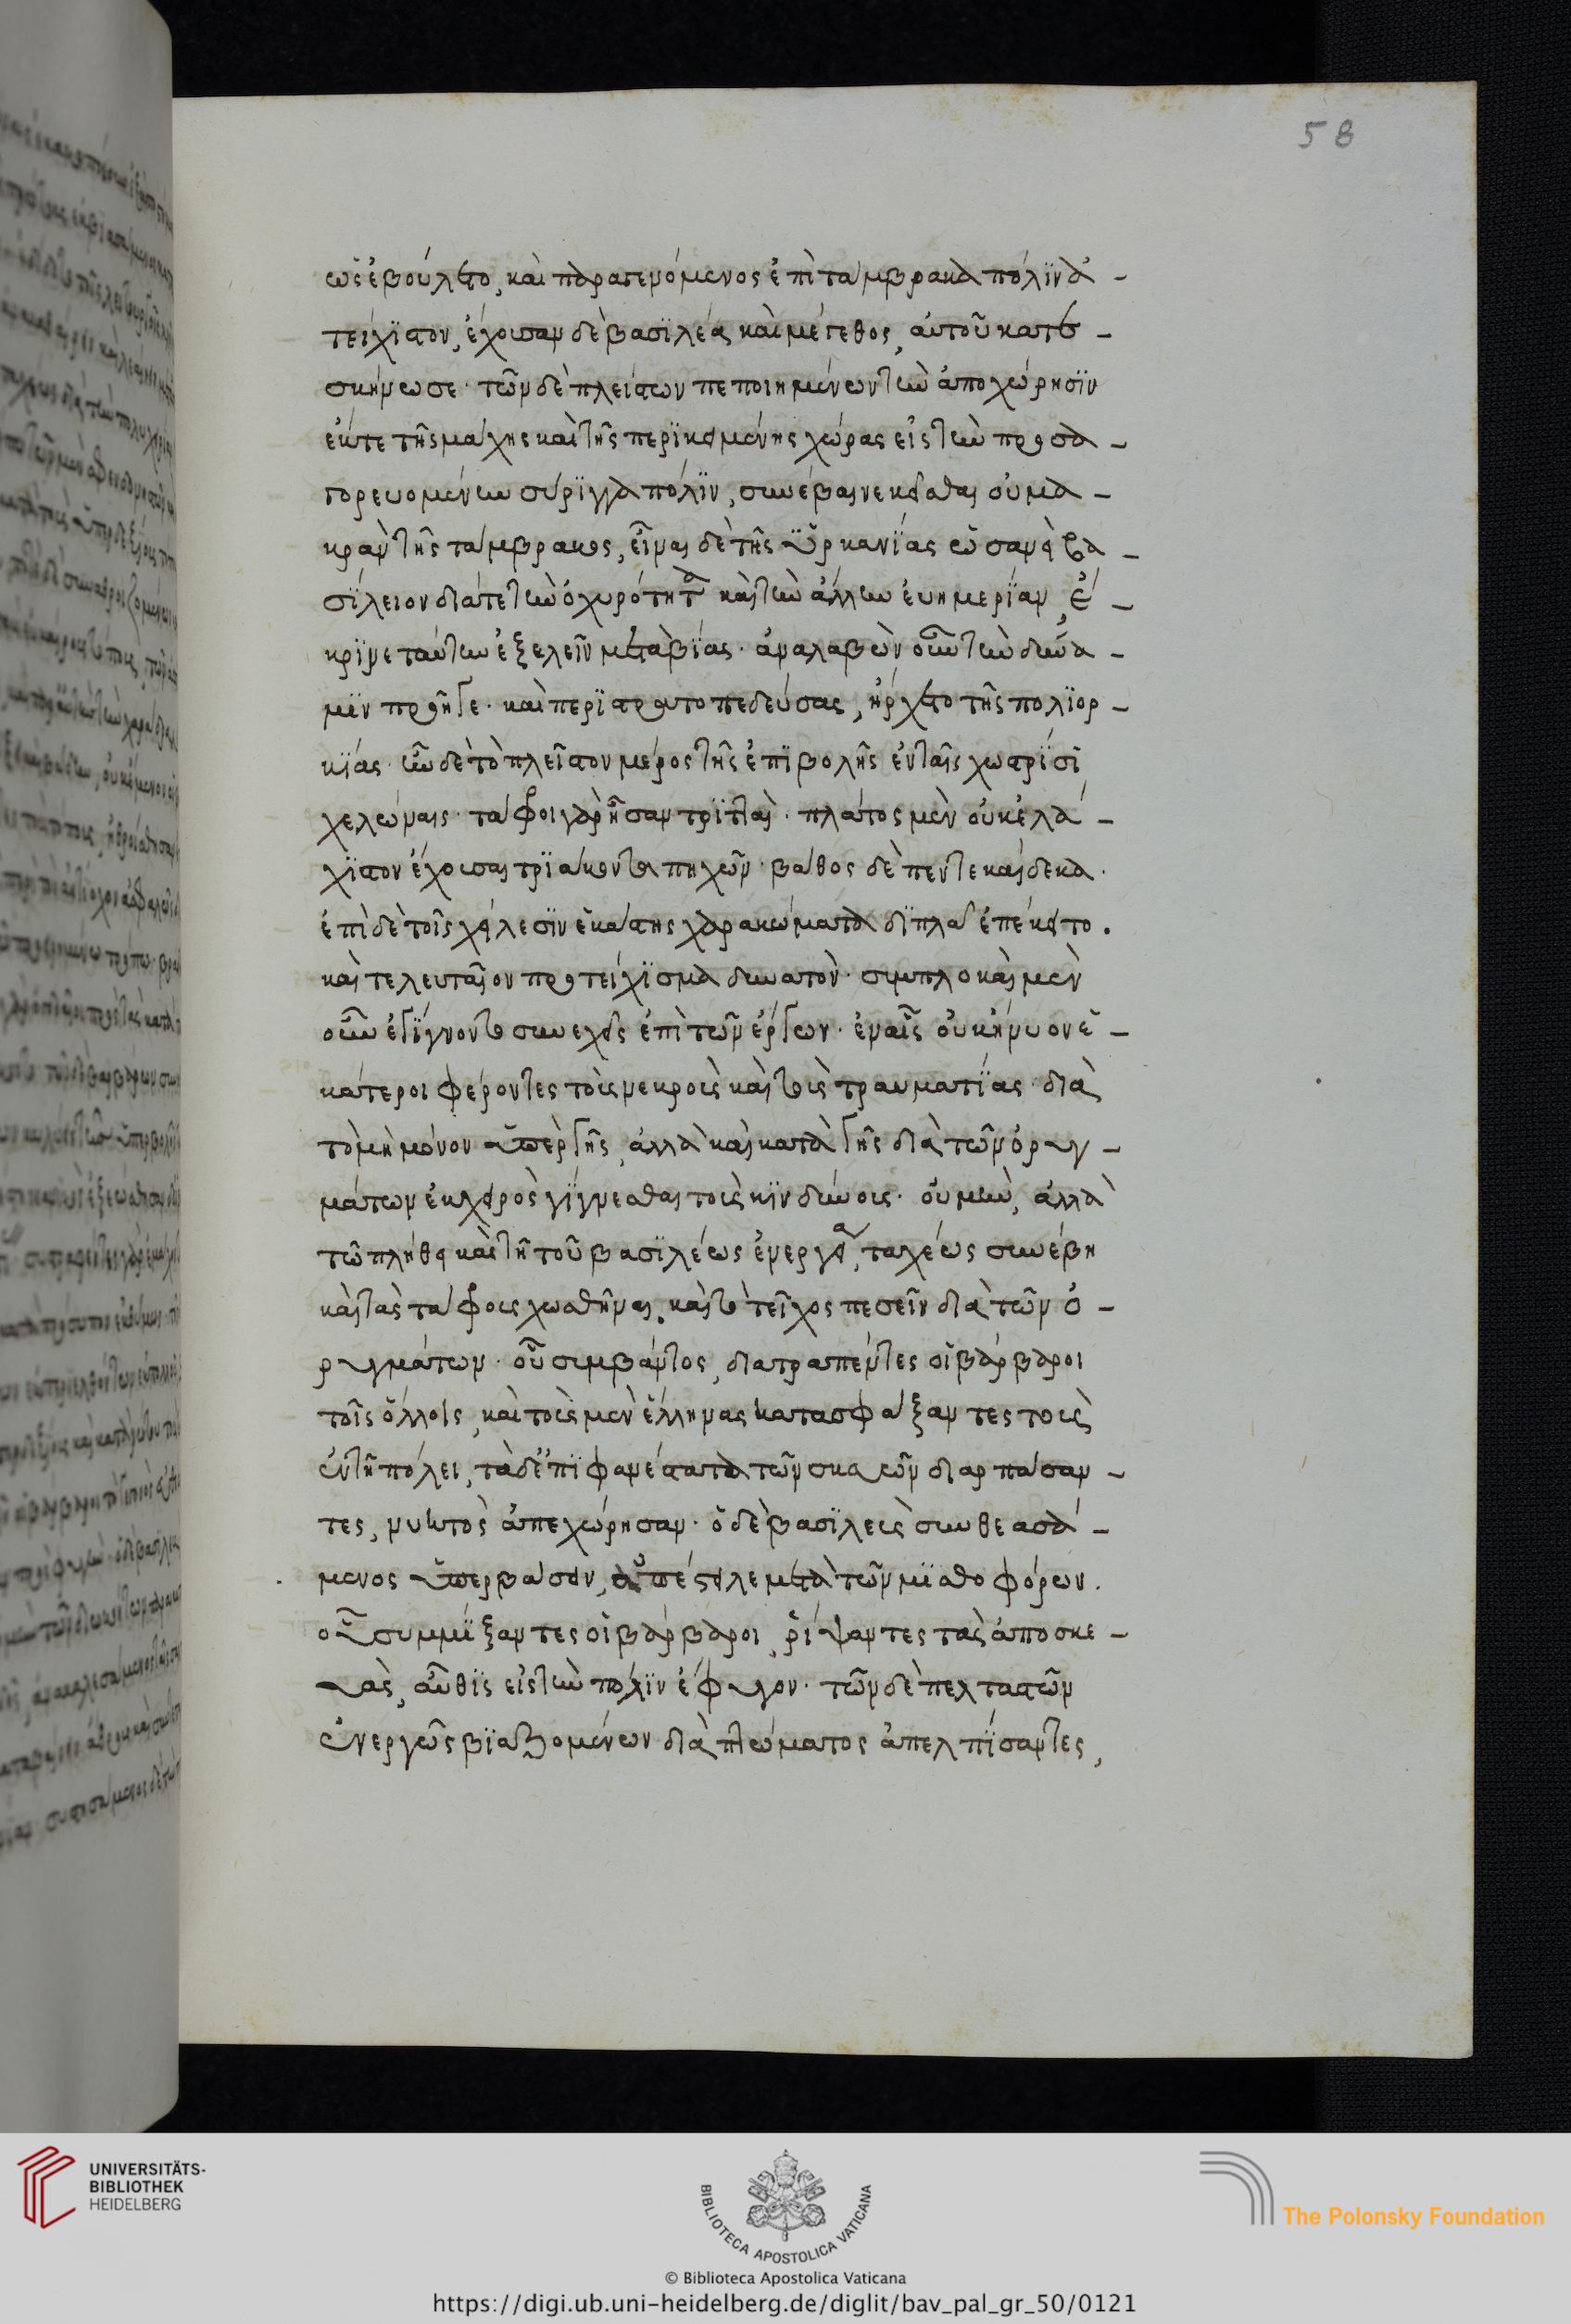 58
ὡς ἐβούλετο, καὶ παραγενόμενος ἐπὶ τάμβρακα πόλϊν ἀ-
τείχϊστον, ἔχουσαν δὲ βασϊλέα καὶ μέγεθος, αὐτοῦ κατε-
σκήνωσε· τῶν δὲ πλείστων πεποιημένων τὴν ἀποχώρησϊν
ἔκ τε τῆς μάχης καὶ τῆς περϊκειμένης χώρας εἰς τὴν προσα-
γορευομένην σύρϊγγα πόλϊν, συνέβαινε κεῖσθαι οὐ μα-
κρὰν τῆς τάμβρακος, εἶναι δὲ τῆς ὑρκανΐας ὡσανεὶ βα-
σΐλειον διά τε τὴν ὀχυρότητα καὶ τὴν ἄλλην εὐημερΐαν, ἔ-
κρϊνε ταύτην ἐξελεῖν μετὰ βΐας· ἀναλαβὼν οὖν τὴν δύνα-
μϊν προῆγε· καὶ περϊστρατοπεδεύσας, ἤρχετο τῆς πολϊορ-
κΐας· ἦν δὲ τὸ πλεῖστον μέρος τῆς ἐπϊβολῆς ἐν ταῖς χωστρΐσϊ
χελώναις· τάφροι γὰρ ἦσαν τρϊτταὶ· πλάτος μὲν οὐκ ἔλα-
χϊστον ἔχουσαι τρϊάκοντα πηχῶν· βάθος δὲ πεντεκαίδεκα·
ἐπὶ δὲ τοῖς χείλεσϊν ἑκάστης χαρακώματα δϊπλᾶ ἐπέκειτο.
καὶ τελευταῖον προτείχϊσμα δυνατόν· συμπλοκαὶ μὲν
οὖν ἐγΐγνοντο συνεχεῖς ἐπὶ τῶν ἔργων· ἐν αἷς οὐκ ἤνυον ἑ-
κάτεροι φέροντες τοὺς νεκροὺς καὶ τοὺς τραυματΐας· διὰ
τὸ μὴ μόνον ὑπὲρ γῆς, ἀλλὰ καὶ κατὰ γῆς διὰ τῶν ὀρυγ-
μάτων ἐκ χειρὸς γΐγνεσθαι τοὺς κϊνδύνους· οὐ μὴν, ἀλλὰ
τῷ πλήθει καὶ τῇ τοῦ βασϊλέως ἐνεργείᾳ, ταχέως συνέβη
καὶ τὰς τάφρους χωσθῆναι, καὶ τὸ τεῖχος πεσεῖν διὰ τῶν ὀ-
ρυγμάτων· οὗ συμβάντος, διατραπέντες οἱ βάρβαροι
τοῖς ὅλλοις, καὶ τοὺς μὲν ἕλληνας κατασφάξαντες τοὺς
ἐν τῇ πόλει, τὰ δ' ἐπϊφανέστατα τῶν σκευῶν διαρπάσαν-
τες, νυκτὸς ἀπεχώρησαν· ὁ δὲ βασϊλεὺς συνθεασά-
μενος ὑπερβάσαν, ἀπέστειλε μετὰ τῶν μϊσθοφόρων.
οἷς συμμΐξαντες οἱ βάρβαροι, ῥΐψαντες τὰς ἀποσκε-
υὰς, αὖθϊς εἰς τὴν πόλϊν ἔφυγον· τῶν δὲ πελταστῶν
ἐνεργῶς βϊαζομένων διὰ πτώματος ἀπελπΐσαντες,
UNIVERSITÄTS-
BIBLIOTHEK
HEIDELBERG
BIBLIOTECA APOSTOLICA VATICANA
The Polonsky Foundation
© Biblioteca Apostolica Vaticana
https://digi.ub.uni-heidelberg.de/diglit/bav_pal_gr_50/0121